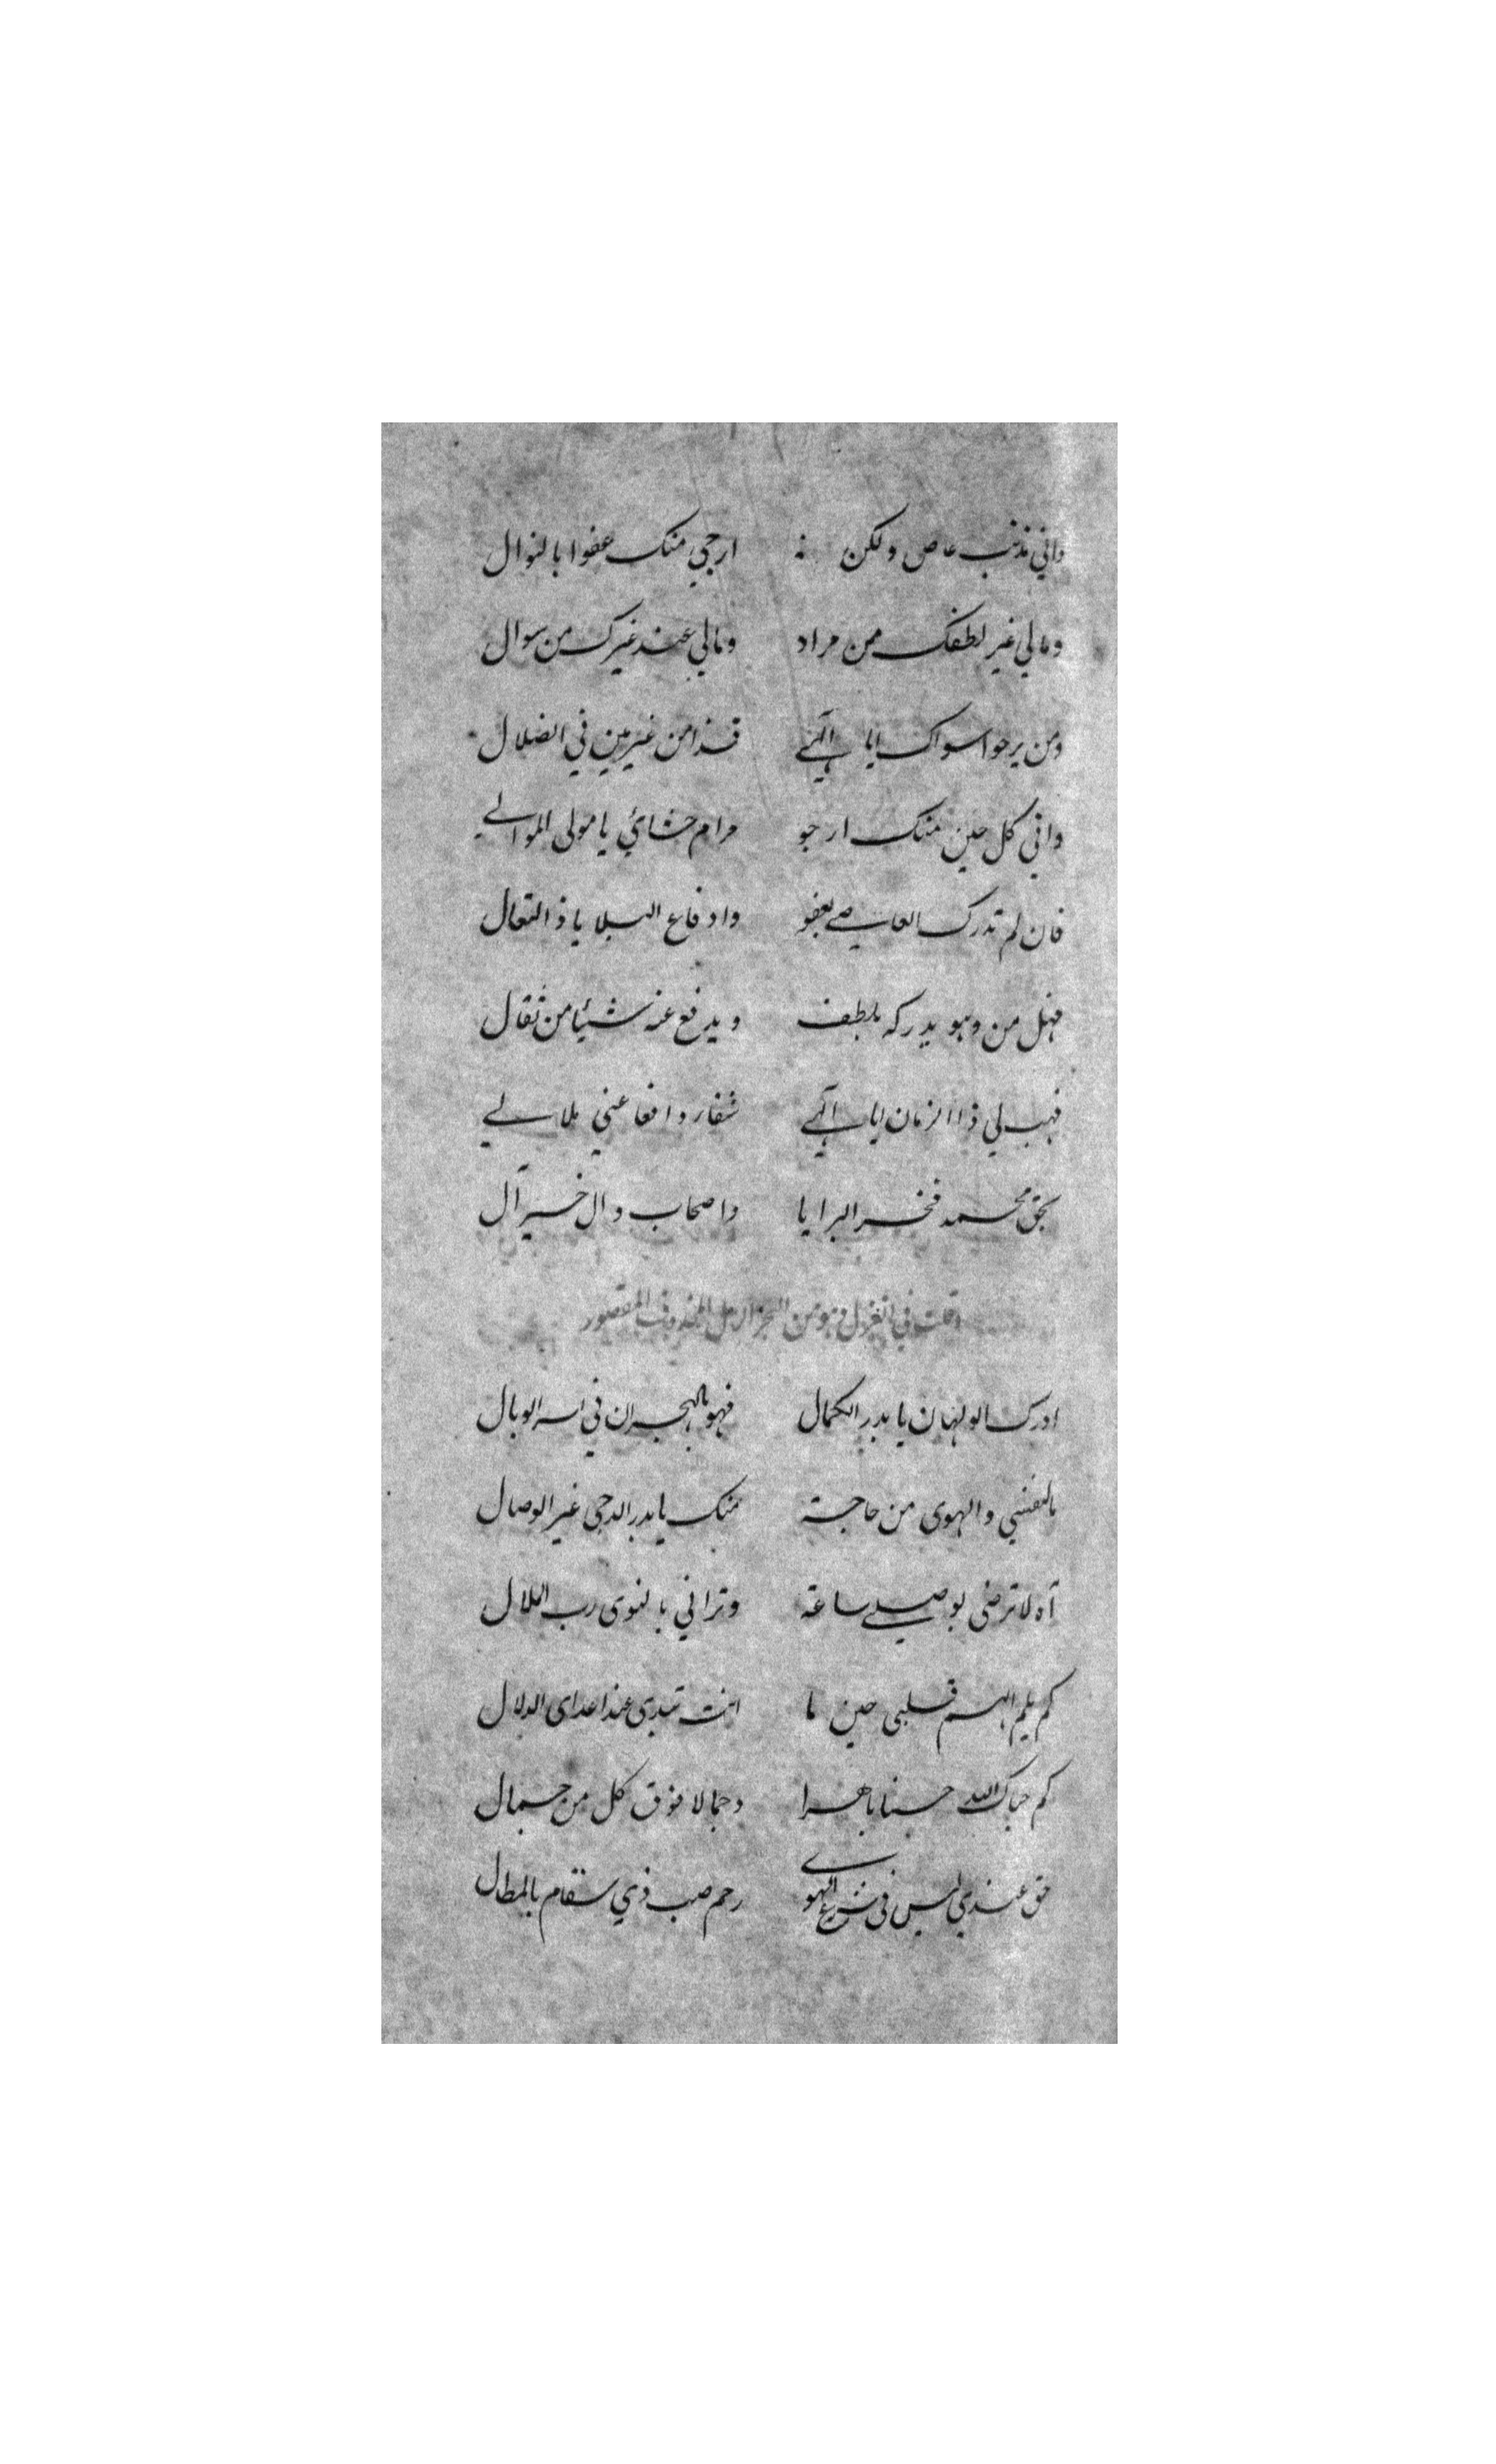 واني مذنب عاص ولكن ارجي منك عفوا بالنوال
ومالي غير لطفك من مراد ومالي عند غيرك من سوال
ومن يرجوا سواك ايا آلهي فذا من غير مين في الضلال
واني كل حين منك ارجو مرام حشائي يا مولى الموالي
فان لم تدرك العاصي بعفو وادفاع البلا يا ذ التعال
فهل من وهو يدركه بلطف ويدفع عنه شيئا من ثقال
فهب لي ذا الزمان ايا آلهي شفار دافعا عني ملالي
بحق محمد فخر البرايا واصحاب وال خير آل
وقلت في الغزل وهو من البحر الرمل المحذوف المقصور
ادرك الولهان يا بدر الكمال فهو بالهجران في اسر الوبال
ما لنفسي والهوى من حاجة منك يا بدر الدجى غير الوصال
آه لا ترضى بوصلي ساعة وتراني بالنوى رب الملال
كم يلم الهم قلبي حين ما انت تبدي عند اعداى الدلال
كم حباك الله حسنا باهرا وجمالا فوق كل من جمال
حق عندي ليس في شرع الهوى رحم صب ذي سقام بالمطال